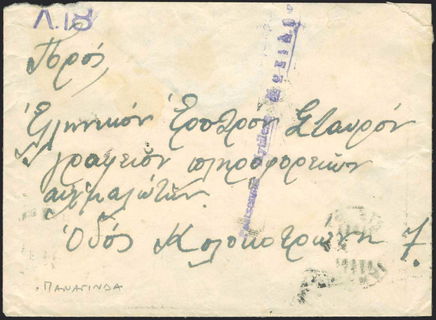 Λ.18
Πρός
Ἑλληνικόν Ἐρυτρός Σταυρόν
γραφεῖον πληροφορειῶν
αἰχμαλώτων.
Ὁδός Κολοκοτρώνη 7.
ΠΑΝΑΓΙΝΔΑ